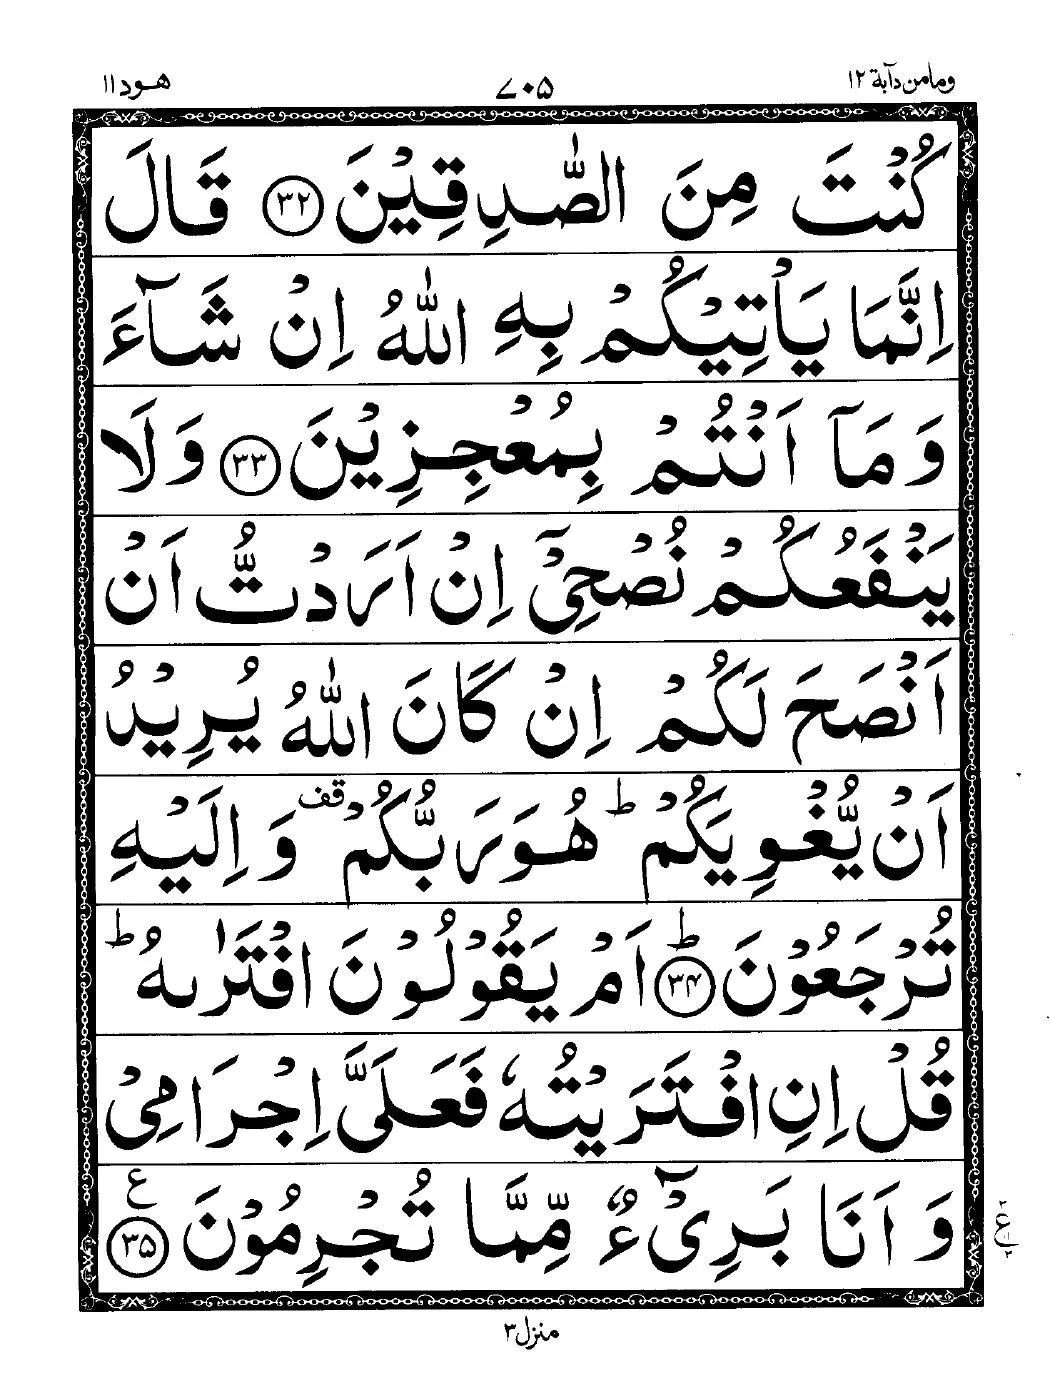 ومامن دآبة ۱۲ ۷۰۵ هود ۱۱
كُنْتَ مِنَ الصّٰدِقِيْنَ ﴿۳۲﴾ قَالَ
اِنَّمَا يَاْتِيْكُمْ بِهِ اللّٰهُ اِنْ شَآءَ
وَمَآ اَنْتُمْ بِمُعْجِزِيْنَ ﴿۳۳﴾ وَلَا
يَنْفَعُكُمْ نُصْحِيْٓ اِنْ اَرَدْتُّ اَنْ
اَنْصَحَ لَكُمْ اِنْ كَانَ اللّٰهُ يُرِيْدُ
اَنْ يُّغْوِيَكُمْ ؕ هُوَ رَبُّكُمْ قف وَاِلَيْهِ
تُرْجَعُوْنَ ؕ ﴿۳۴﴾ اَمْ يَقُوْلُوْنَ افْتَرٰىهُ ؕ
قُلْ اِنِ افْتَرَيْتُهٗ فَعَلَيَّ اِجْرَامِيْ
وَاَنَا بَرِيْٓءٌ مِّمَّا تُجْرِمُوْنَ ع ﴿۳۵﴾
منزل ۳